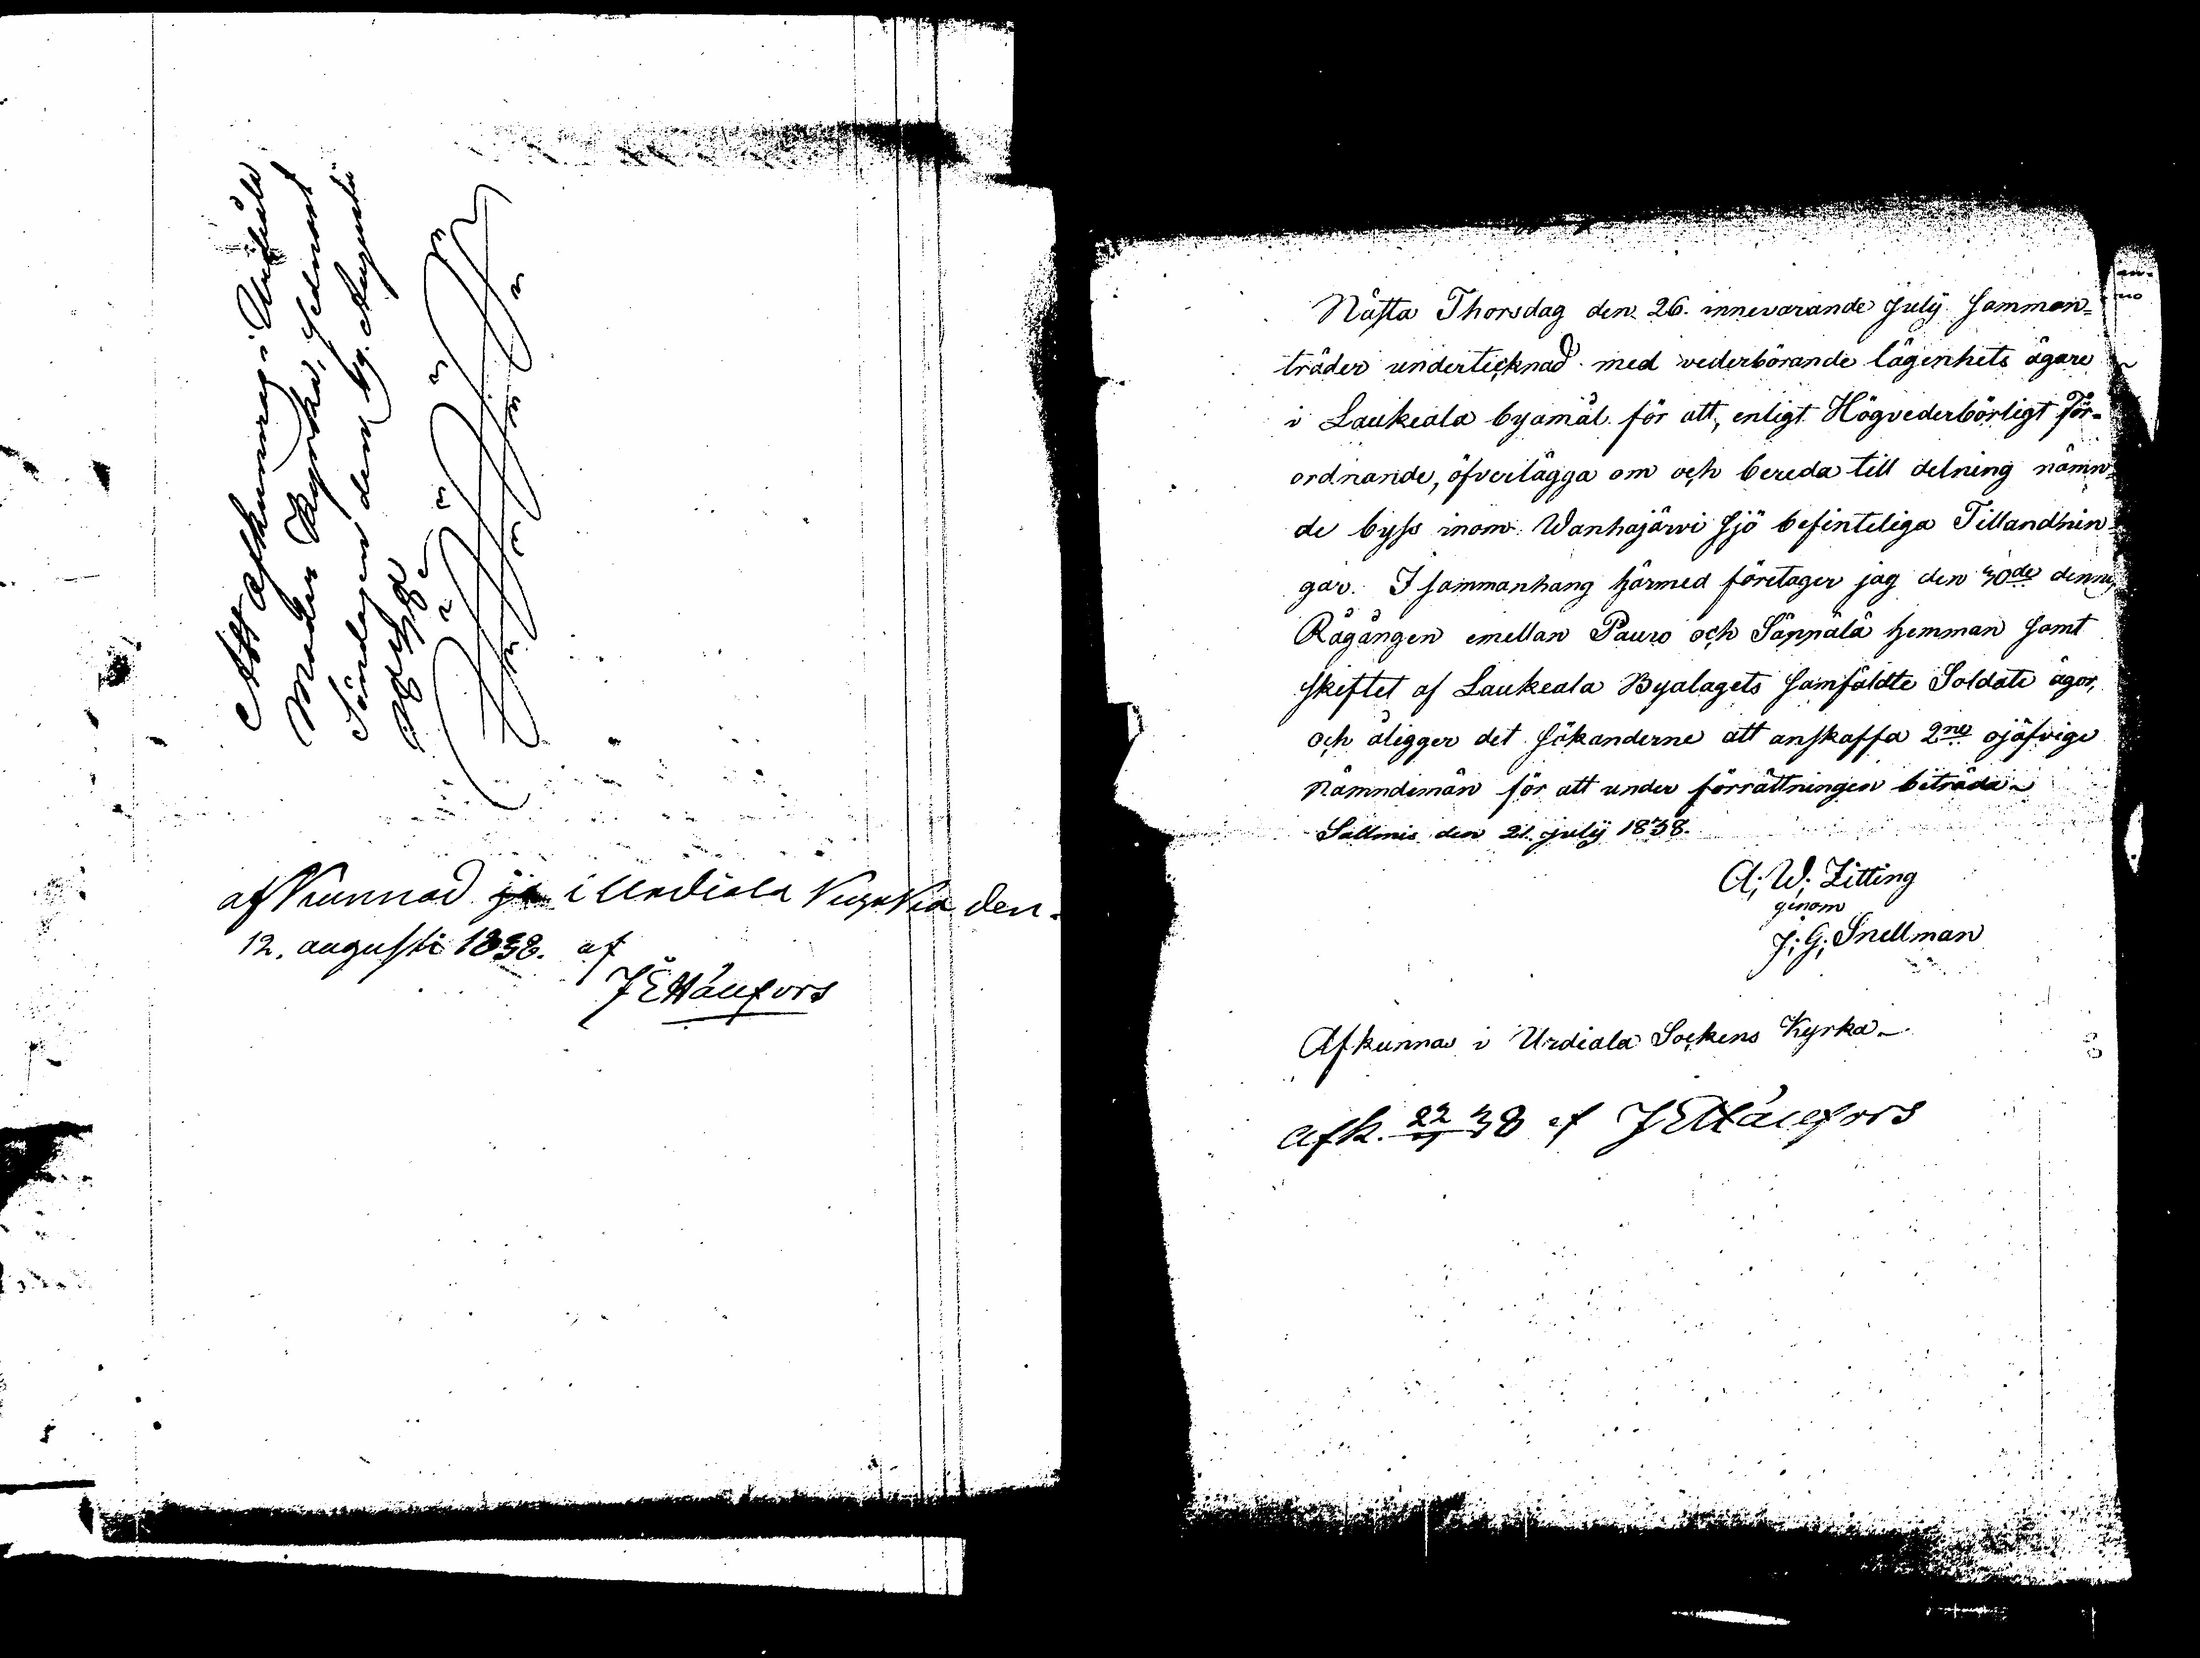 Att afkunnas i Urdiala
Moder Kyrka, sednast
Söndagen den 19. Augusti
1838.
afkunnad i Urdiala Kyrka den
12. augusti 1838. af
J E Häufors
Nästa Thorsdag den 26. innevarande July samman-
träder underteknad med vederbörande lägenhets ägare
i Laukeala byamål för att, enligt Högvederbörligt För-
ordnande, öfverlägga om och bereda till delning nämn-
de byss inom Wanhajärvi sjö befinteliga Tillandnin-
gar. I sammanhang härmed företager jag den 30de dennes
Rågången emellan Pauro och Säppälä hemman samt
skiftet af Laukeala Byalagets samfäldte Soldate ägor,
och åligger det sökanderne att anskaffa 2ne ojäfvige
Nämndemän för att under förrättningen biträda.
Sallmis den 21. july 1838.
A; W; Zitting
genom
J; G; Snellman
Afkunnas i Urdiala Sockens Kyrka.
Afk. 22/7 38 af J E Häufors